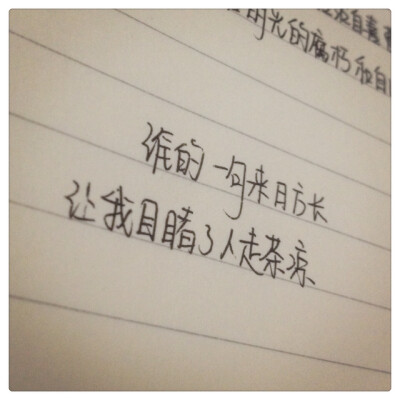 时光的腐朽和自
谁的一句来日方长
让我目睹了人走茶凉